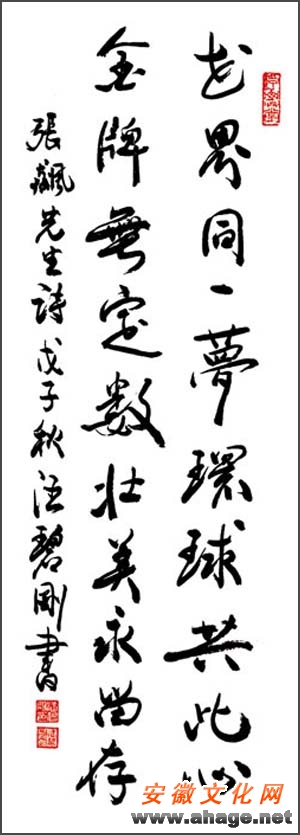 世界同一夢環球共此心
金牌無定數壯美永留存
張飆先生詩戊子秋汪碧剛書
安徽文化网
www.ahage.net